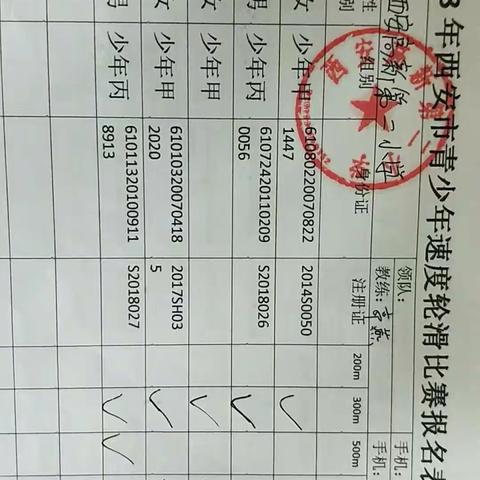 8年西安市青少年速度轮滑比赛报名表
领队： 手机：
西安高新第一小学 教练： 手机：
性别 组别 身份证 注册证 200m 300m 500m
女 少年甲 61080220070822
1447 2014S0050
男 少年丙 61072420110209
0056 S2018026
女 少年甲
女 少年甲 61010320070418
2020 2017SH03
5
男 少年丙 61011320100911
8913 S2018027